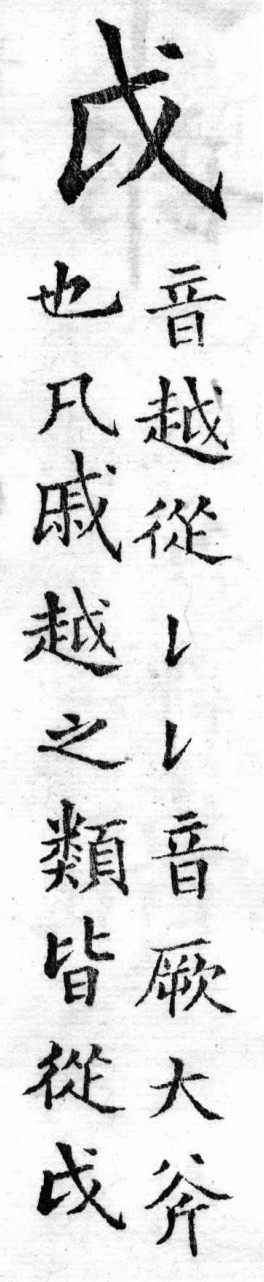 戉
音越從𠄌𠄌音厥大斧
也凡戚越之類皆從戉